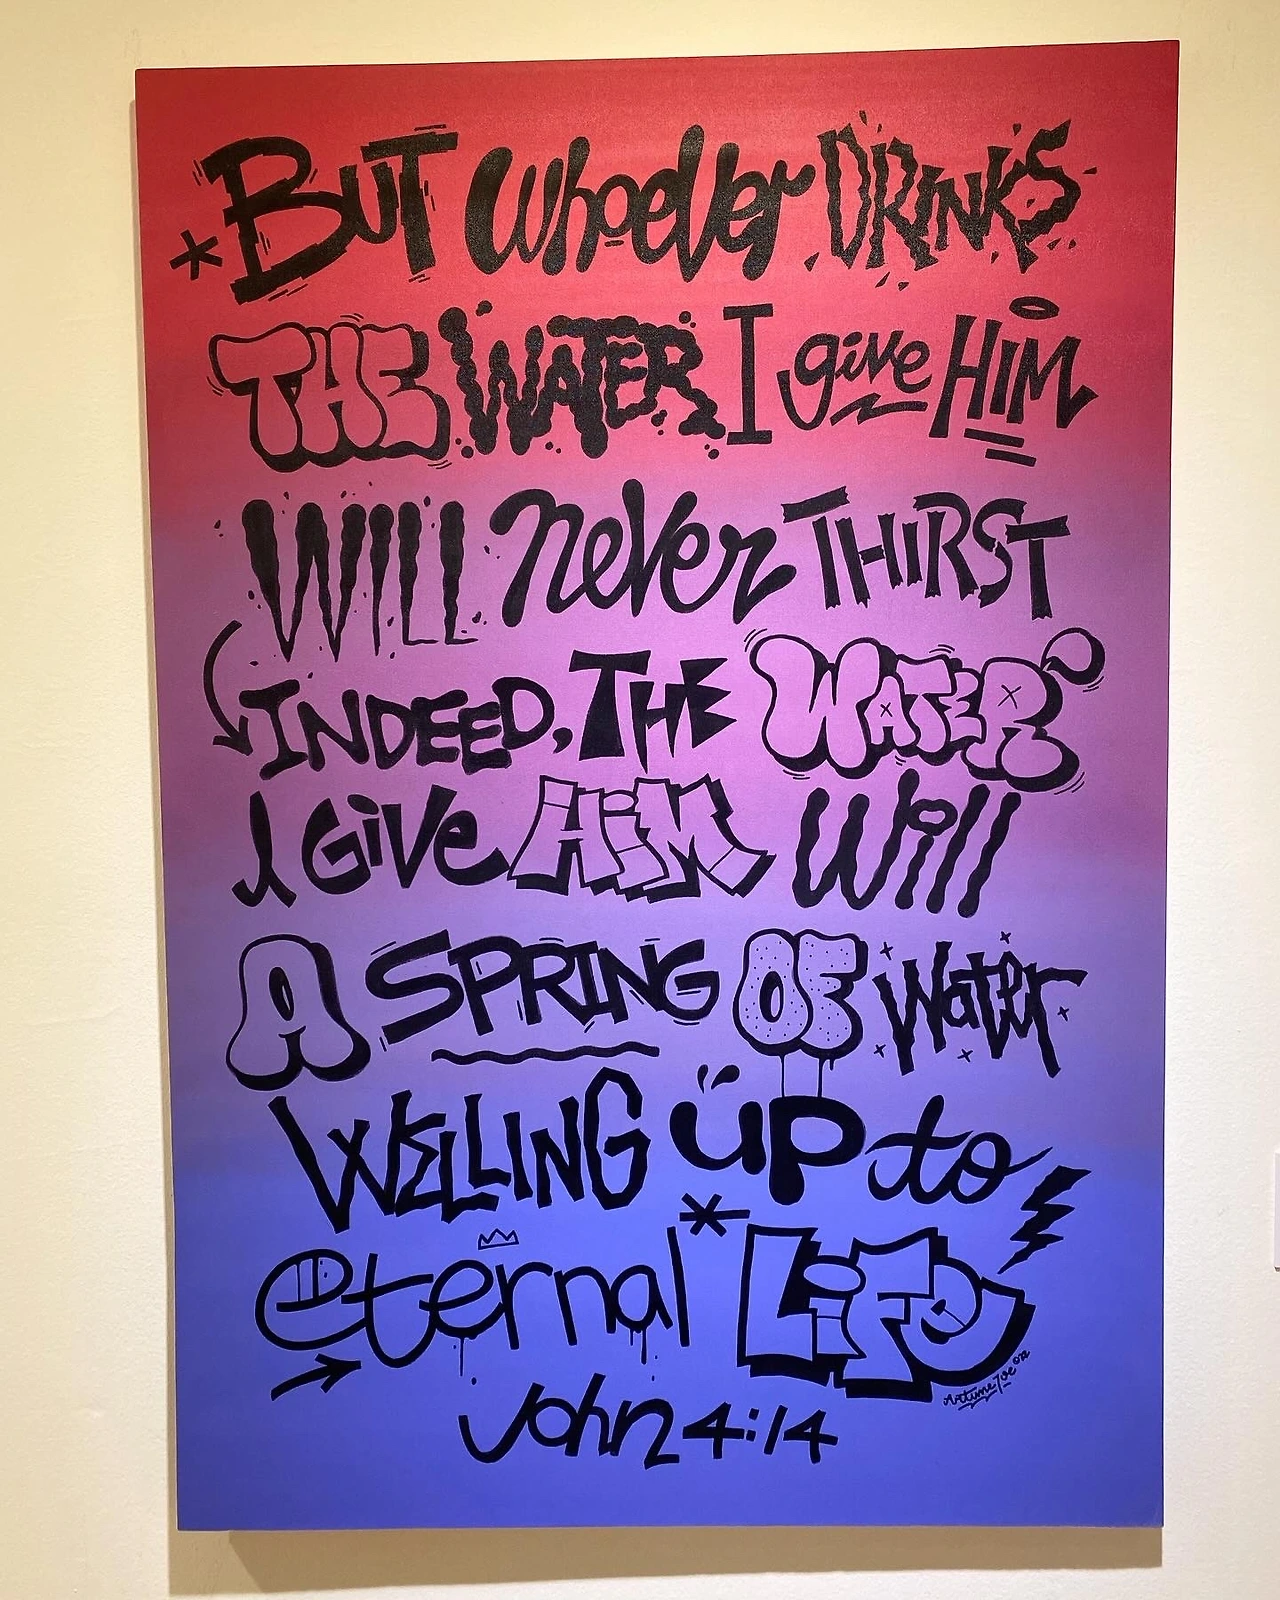 *But whoever DRINKS
THE WATER I give HiM
WILL never THIRST
INDEED, THE WATER
I GiVe HiM Will
A SPRING OF Water
WELLING up to
eternal* LiFe
Joe ©22
John 4:14